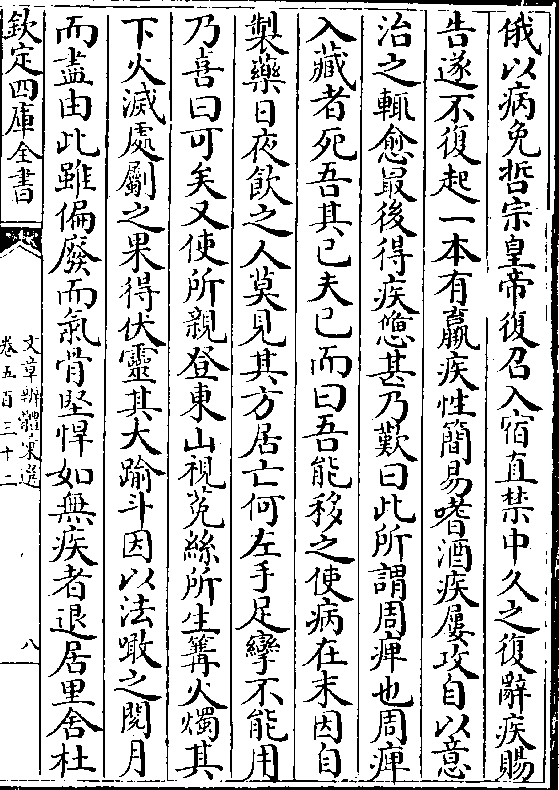 俄以病免哲宗皇帝復召入宿直禁中久之復辭疾賜
告遂不復起一本有羸疾性簡易嗜酒疾屢攻自以意
治之輒愈最後得疾憊甚乃歎曰此所謂周痺也周痺
入藏者死吾其已夫已而曰吾能移之使病在末因自
製藥日夜飲之人莫見其方居亡何左手足攣不能用
乃喜曰可矣又使所親登東山視菟絲所生篝火燭其
下火滅處劚之果得伏靈其大踰斗因以法噉之閱月
而盡由此雖偏廢而氣骨堅悍如無疾者退居里舍杜
欽定四庫全書
文章辨體彙選
卷五百三十二
八